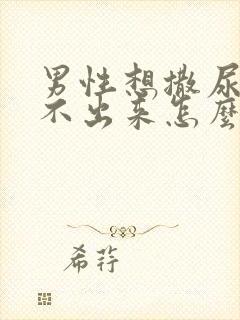 男性想撒尿
不出来怎麼
希荇